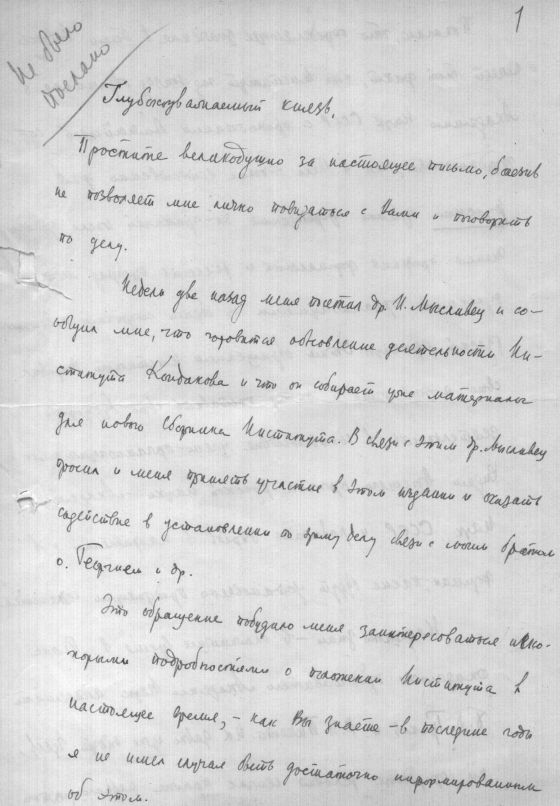 1
Не было
послано
Глубокоуважаемый князь,
Простите великодушно за настоящее письмо, болезнь
не позволяет мне лично повидаться с Вами и поговорить
по делу.
Недели две назад меня посетил др. И. Мысливец и со-
общил мне, что готовится обновление деятельности Ин-
ститута Кондакова и что он собирает уже материалы
для нового Сборника Института. В связи с этим др. Мысливец
просил и меня принять участие в этом издании и оказать
содействие в установлении по этому делу связи с моим братом
о. Георгием и др.
Это обращение побудило меня заинтересоваться неко-
торыми подробностями о положении Института в
настоящее время, – как Вы знаете – в последние годы
я не имел случая быть достаточно информированным
об этом.